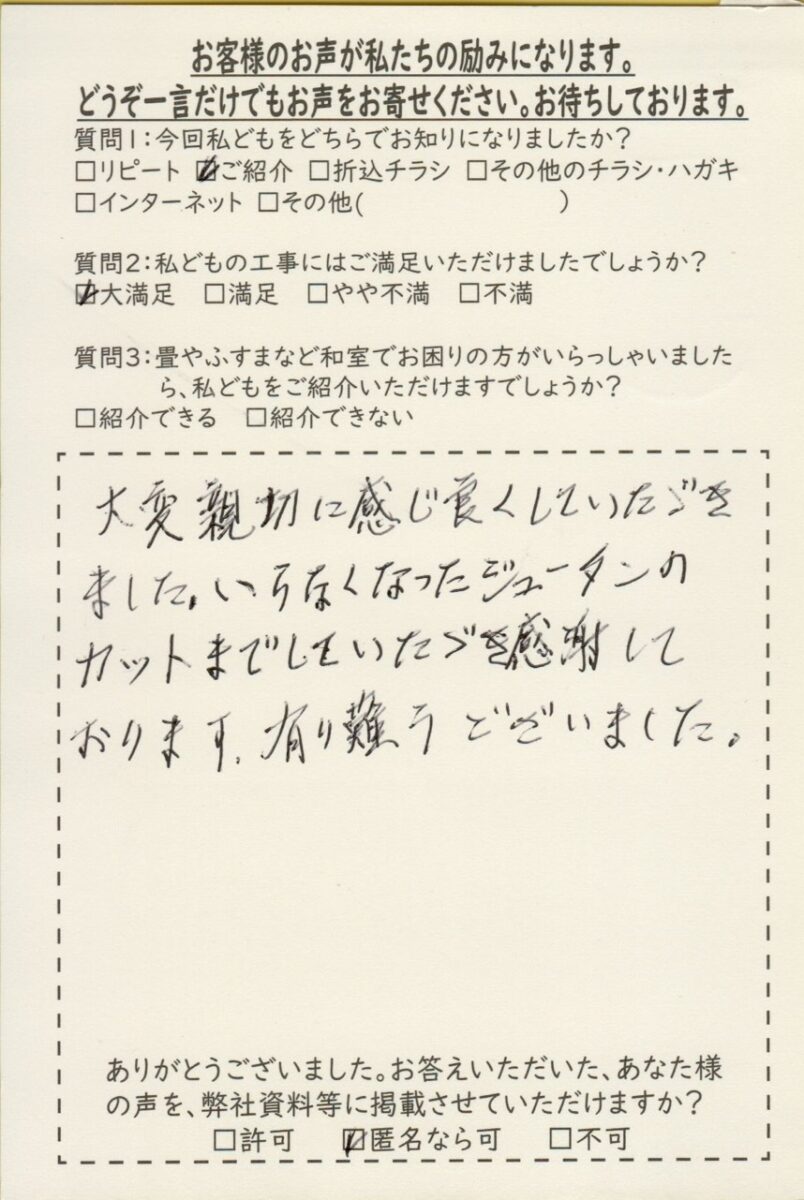 お客様のお声が私たちの励みになります。
どうぞ一言だけでもお声をお寄せください。お待ちしております。
質問1:今回私どもをどちらでお知りになりましたか?
□リピート ☑ご紹介 □折込チラシ □その他のチラシ・ハガキ
□インターネット □その他( )
質問2:私どもの工事にはご満足いただけましたでしょうか?
☑大満足 □満足 □やや不満 □不満
質問3:畳やふすまなど和室でお困りの方がいらっしゃいました
ら、私どもをご紹介いただけますでしょうか?
□紹介できる □紹介できない
大変親切に感じ良くしていただき
ました。いらなくなったジュータンの
カットまでしていただき感謝して
おります。有り難うございました。
ありがとうございました。お答えいただいた、あなた様
の声を、弊社資料等に掲載させていただけますか?
□許可 ☑匿名なら可 □不可